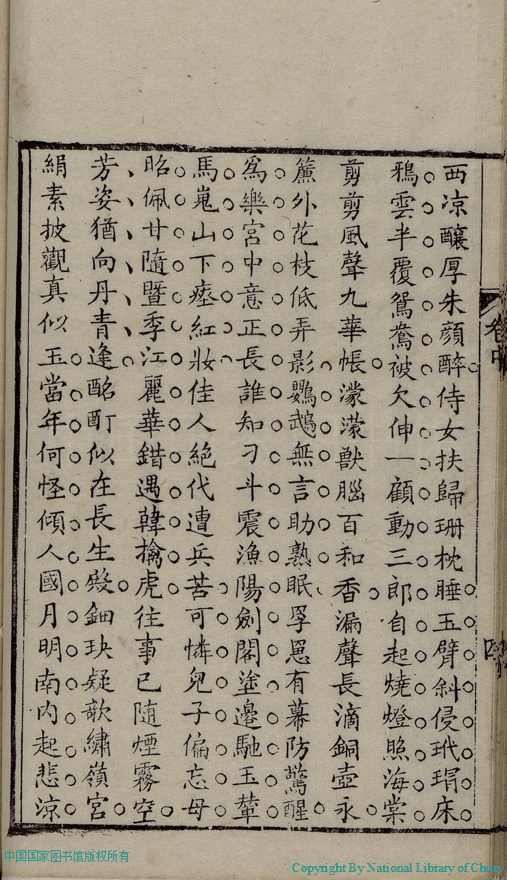 西凉釀厚朱顔醉侍女扶歸珊枕睡玉臂斜侵玳瑁床
鴉雲半覆鴛鴦被欠伸一顧動三郎自起燒燈照海棠
剪剪風聲九華帳濛濛獸腦百和香漏聲長滴銅壺永
簾外花枝低弄影鸚鵡無言助熟眠罘罳有幕防驚醒
爲樂宫中意正長誰知刁斗震漁陽劍閣塗邊馳玉輦
馬嵬山下瘞紅妝佳人絕代遭兵苦可憐兒子偏忘母
昭佩甘隨暨季江麗華錯遇韓擒虎往事已隨煙霧空
芳姿猶向丹青逢酩酊似在長生殿鈿玦疑歌繡嶺宮
絹素披觀真似玉當年何怪傾人國月明南内起悲涼
卷中
中国国家图书馆版权所有
Copyright By National Library of China